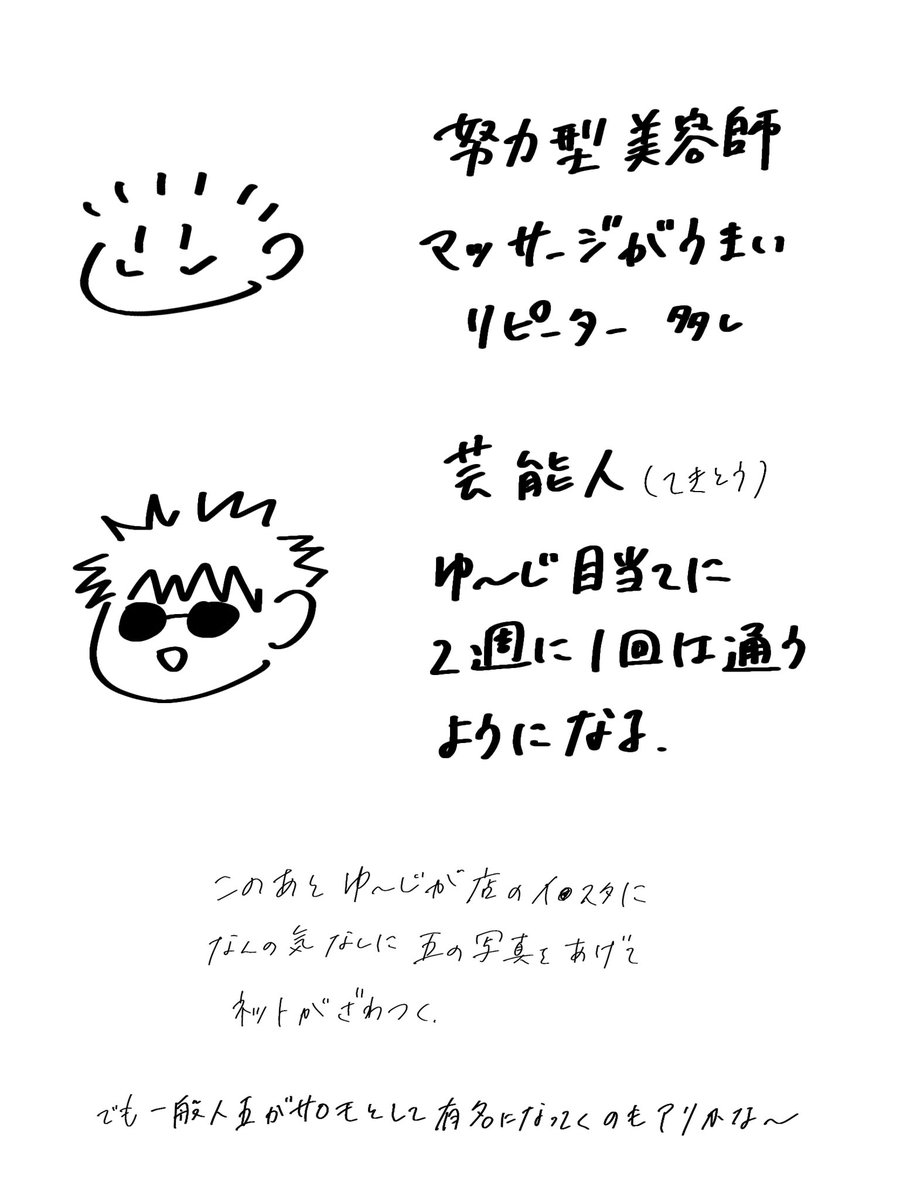 努力型美容師
マッサージがうまい
リピーター 多し
芸能人(てきとう)
ゆ〜じ目当てに
2週に1回は通う
ようになる.
このあとゆ〜じが店のイ●スタに
なんの気なしに五の写真をあげて
ネットがざわつく.
でも一般人五がサロモとして有名になってくのもアリかな〜